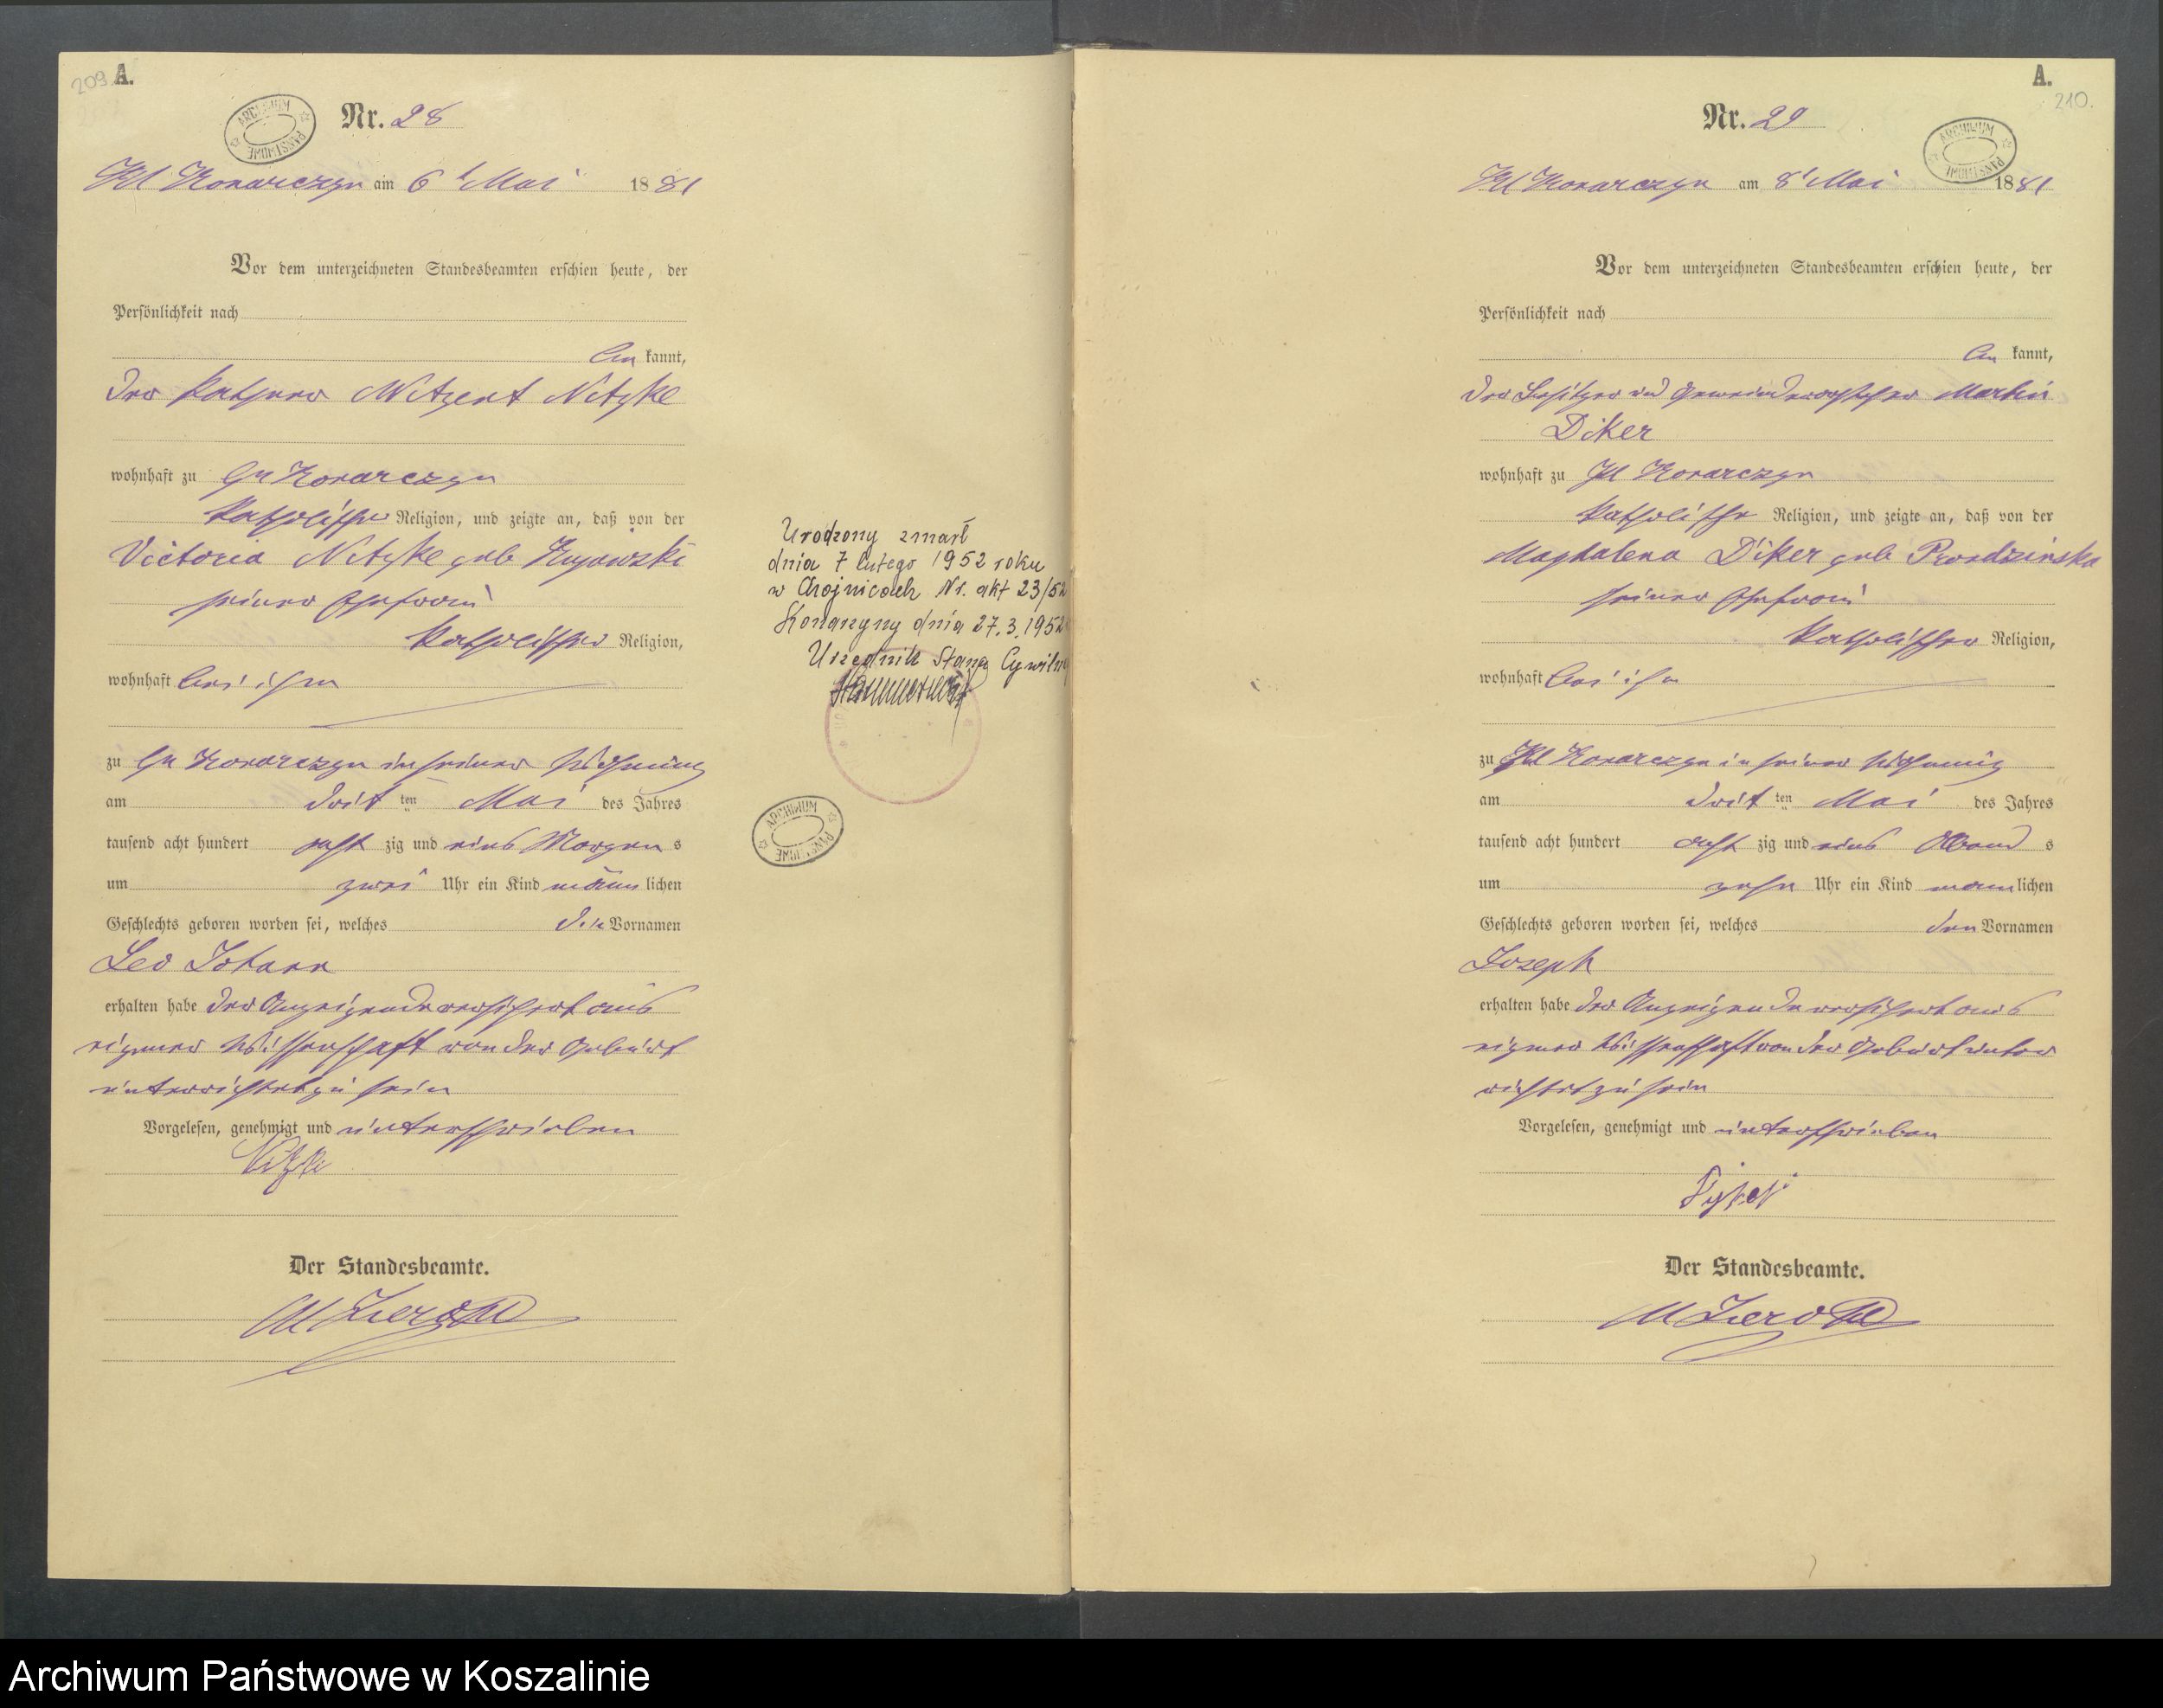 209 A.
ARCHIWUM PAŃSTWOWE
Nr. 28
Kl Konarczyn am 6t Mai 1881
Vor dem unterzeichneten Standesbeamten erschien heute, der
Persönlichkeit nach
be kannt,
der Kathner Nitzke
wohnhaft zu Gr Konarczyn
katholischer Religion, und zeigte an, daß von der
Victoria Nitzke geb Kujawski
seiner Ehefrau
katholischer Religion,
wohnhaft bei ihm
zu Gr Konarczyn in seiner Wohnung
am drit ten Mai des Jahres
tausend acht hundert acht zig und eins Morgen s
um zwei Uhr ein Kind männ lichen
Geschlechts geboren worden sei, welches die Vornamen
Leo Johann
erhalten habe der Anzeigende versichert aus
eigener Wissenschaft von der Geburt
unterrichtet zu sein
Vorgelesen, genehmigt und unterschrieben
Nitzke
Der Standesbeamte.
Urodzony zmarł
dnia 7 lutego 1952 roku
w Chojnicach Nr. akt 23/52
Konarzyny dnia 27.3.1952
Urzędnik Stanu Cywilne
ARCHIWUM PAŃSTWOWE
A.
210.
Nr. 29
ARCHIWUM PAŃSTWOWE
Kl Konarczyn am 8t Mai 1881
Vor dem unterzeichneten Standesbeamten erschien heute, der
Persönlichkeit nach
be kannt,
der Besitzer und Gemeindevorsteher Martin
Diker
wohnhaft zu Kl Konarczyn
katholischer Religion, und zeigte an, daß von der
Magdalena Diker geb Prondzinska
seiner Ehefrau
katholischer Religion,
wohnhaft bei ihm
zu Kl Konarczyn in seiner Wohnung
am drit ten Mai des Jahres
tausend acht hundert acht zig und eins Abend s
um zehn Uhr ein Kind mann lichen
Geschlechts geboren worden sei, welches den Vornamen
Joseph
erhalten habe der Anzeigende versichert aus
eigener Wissenschaft von der Geburt unter
richtet zu sein
Vorgelesen, genehmigt und unterschrieben
Der Standesbeamte.
Archiwum Państwowe w Koszalinie